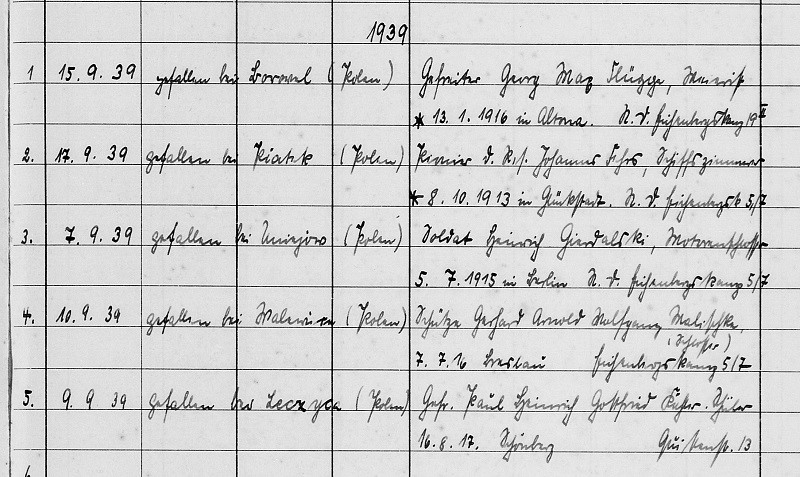 1939
1 15. 9. 39 gefallen bei Borowel (Polen) Gefreiter Georg Max Flügge,
* 13. 1. 1916 in Altona. N. d. 19 II
2. 17. 9. 39 gefallen bei Piatek (Polen) Pionier d. Res. Johannes Fehrs, Schiffszimmerer
* 8. 10. 1913 in Glückstadt. N. d. 5/7
3. 7. 9. 39 gefallen bei Uniejow (Polen) Soldat Heinrich Gierdalski, Motorenschlosser
5. 7. 1915 in Berlin N. d. 5/7
4. 10. 9. 39 gefallen bei (Polen) Schütze Gerhard Arnold Wolfgang Malischke,
(Schlosser)
7. 7. 16 Breslau 5/7
5. 9. 9 39 gefallen bei Leczyca (Polen) Gefr. Paul Heinrich Gottfried
16. 8. 17. Schönberg 13
6